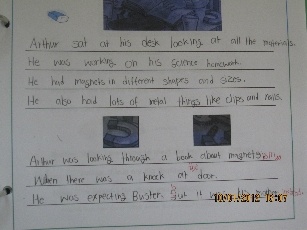 Arthur sat at his desk looking at all the materials.
He was working on his science homework.
He had magnets in different shapes and sizes.
He also had lots of metal things like clips and nails.
Arthur was looking through a book about magnets
When there was a knock at door.
He was expecting Buster. but it